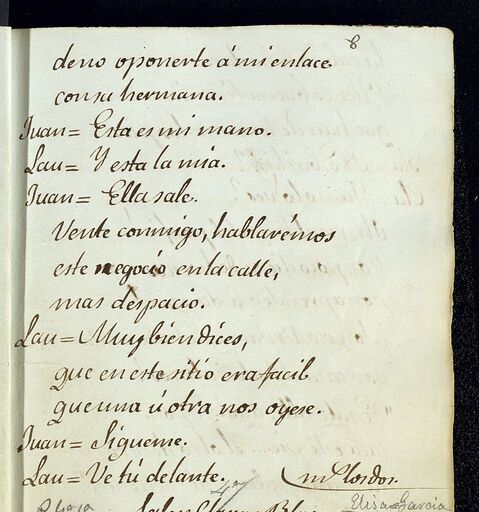 8
de no oponerte á mi enlace
con su hermana.
Juan = Esta es mi mano.
Lau = Y esta la mia.
Juan = Ella sale.
Vente conmigo, hablarémos
este negocio en la calle,
mas despacio.
Lau = Muy bien dices,
que en este sitio era facil
que una ú otra nos oyese.
Juan = Sigueme.
Lau = Ve tú delante. los dos.
Elisa = Garcia